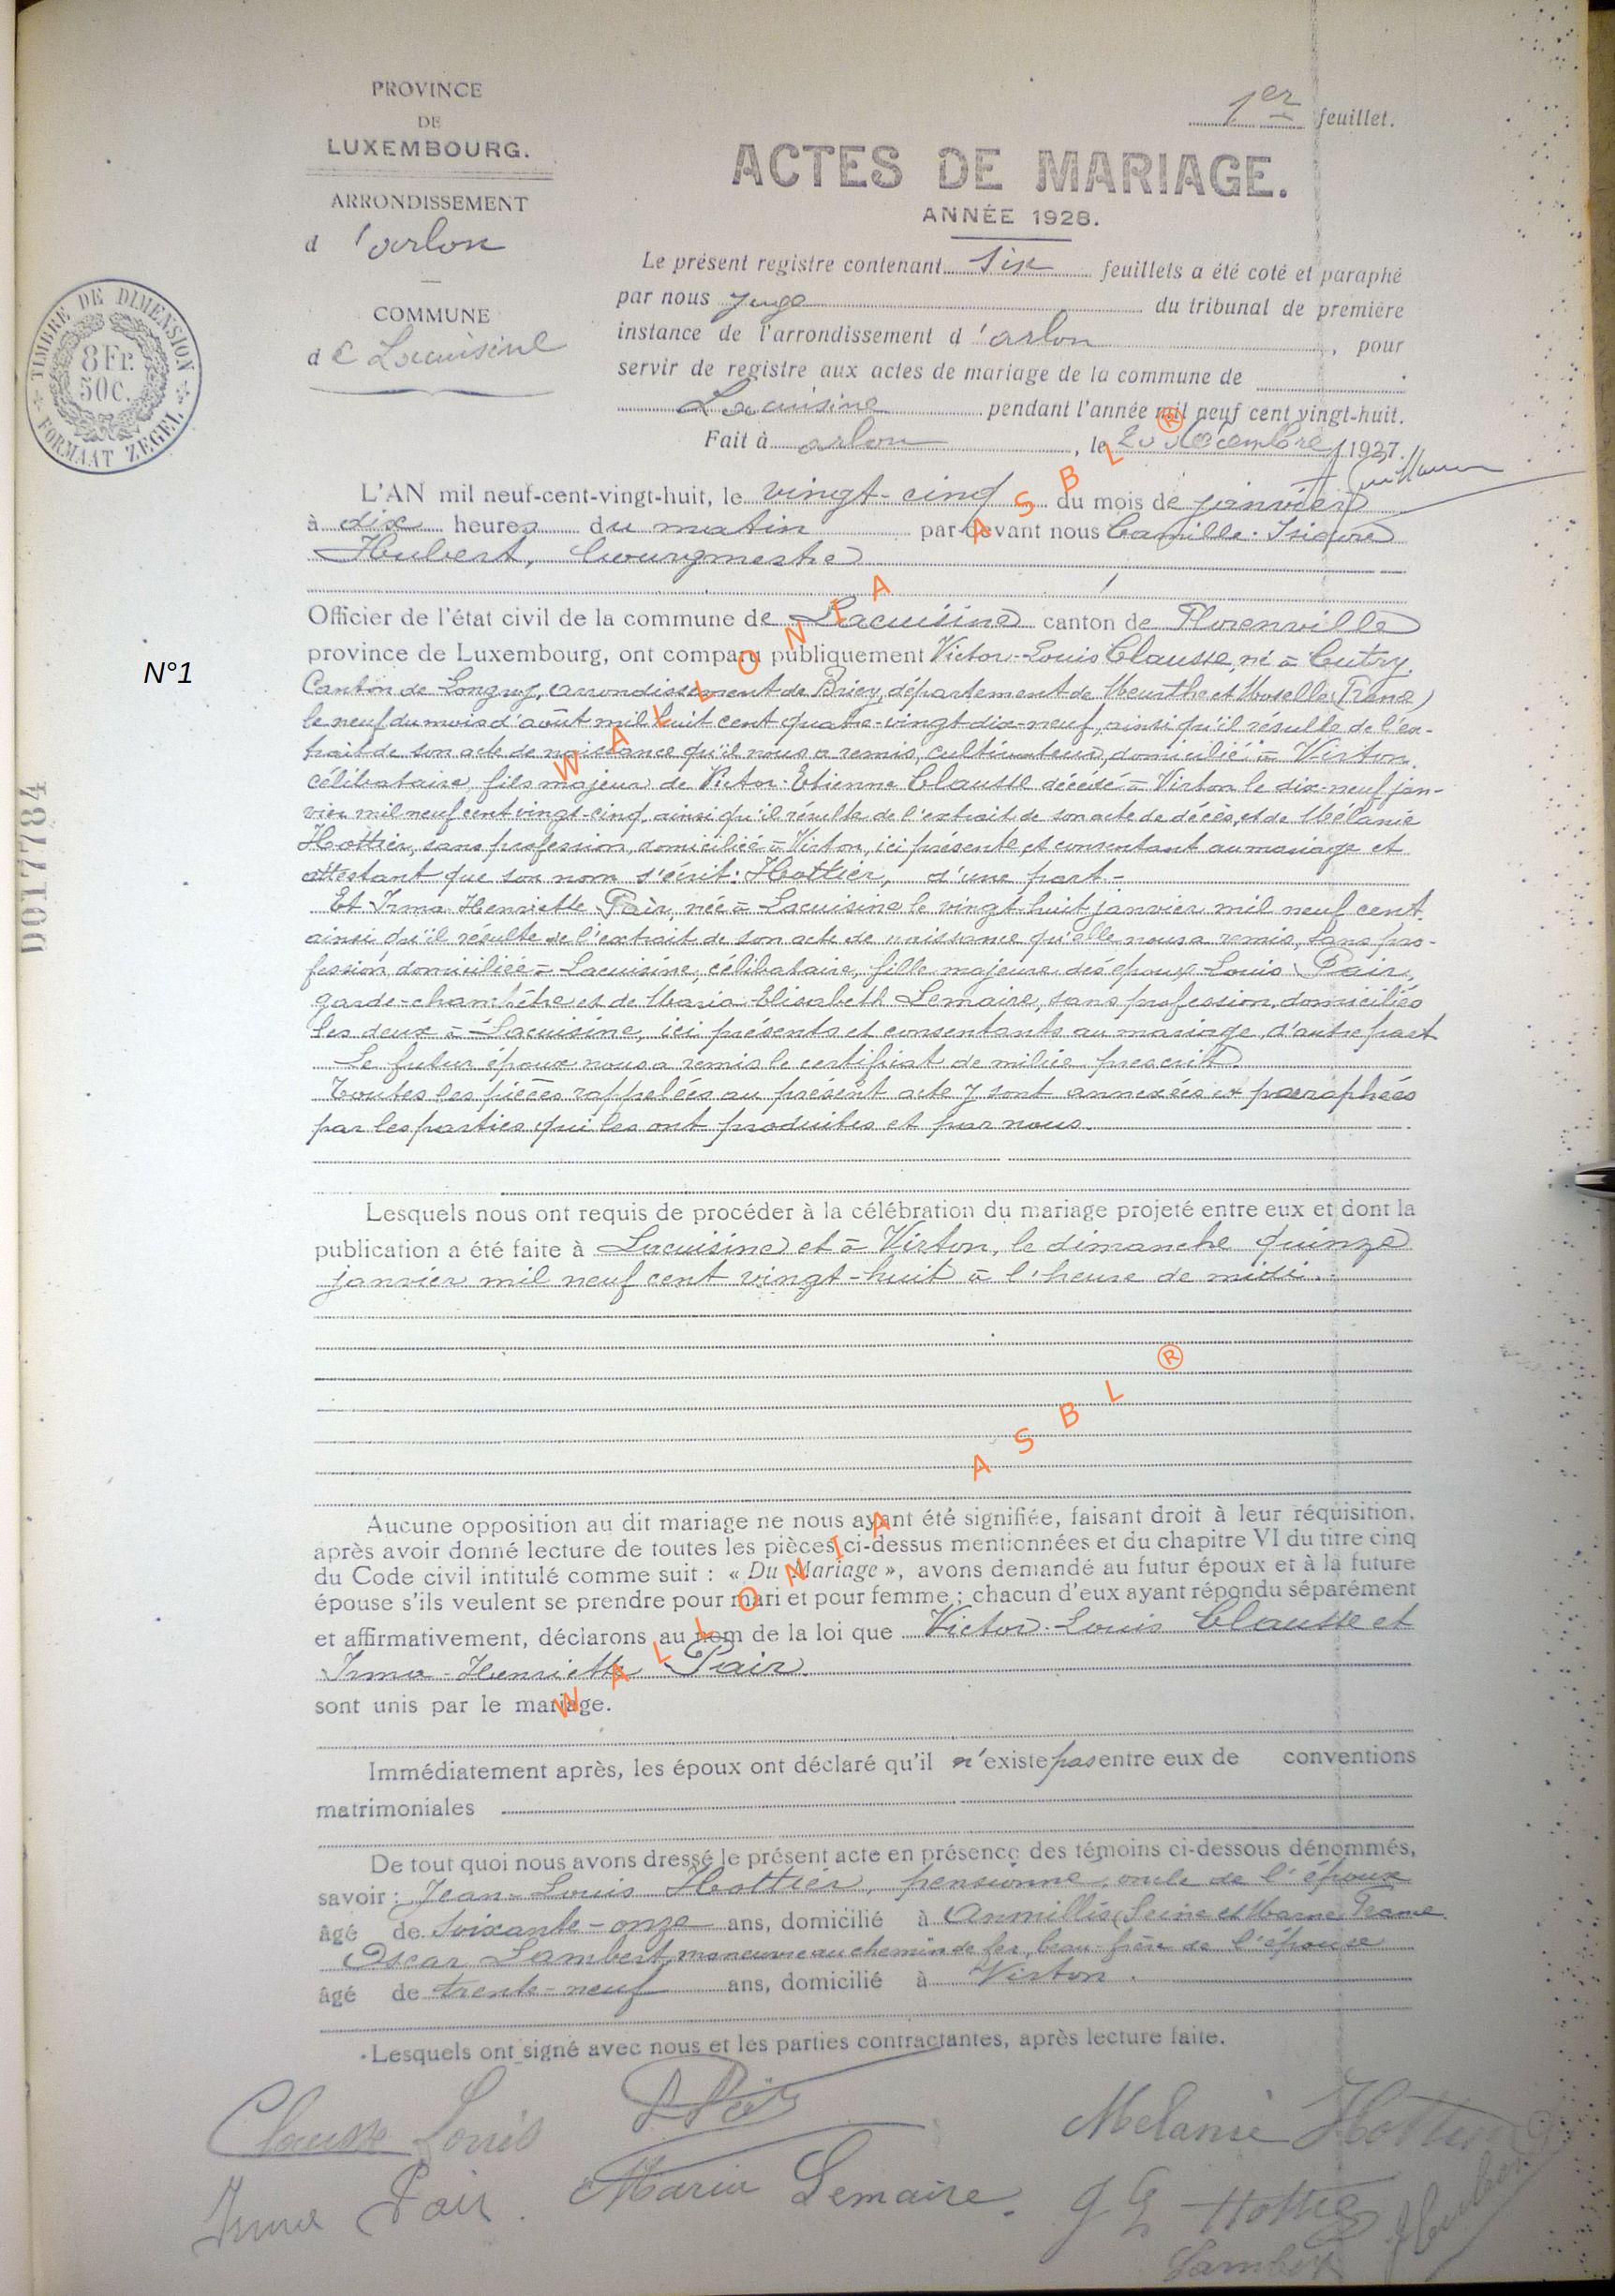 PROVINCE
DE
LUXEMBOURG.
ARRONDISSEMENT
d'arlon
COMMUNE
de Lacuisine
TIMBRE DE DIMENSION
8 Fr.
50c.
FORMAAT ZEGEL
1er feuillet.
ACTES DE MARIAGE.
ANNÉE 1928.
Le présent registre contenant six feuillets a été coté et paraphé
par nous juge du tribunal de première
instance de l'arrondissement d'arlon, pour
servir de registre aux actes de mariage de la commune de
Lacuisine pendant l'année mil neuf cent vingt-huit.
Fait à arlon, le 20 décembre 1927.
L'AN mil neuf-cent-vingt-huit, le vingt-cinq du mois de janvier
à dix heures du matin par-devant nous Camille Isidore
Hubert, bourgmestre
Officier de l'état civil de la commune de Lacuisine canton de Florenville
N°1
province de Luxembourg, ont comparu publiquement Victor-Louis Clausse, né à Cutry,
Canton de Longwy, arrondissement de Briey, département de Meurthe et Moselle (France)
le neuf du mois d'août mil huit cent quatre-vingt-dix-neuf, ainsi qu'il résulte de l'ex-
trait de son acte de naissance qu'il nous a remis, cultivateur, domicilié à Virton,
célibataire, fils majeur de Victor-Etienne Clausse décédé à Virton le dix-neuf jan-
vier mil neuf cent vingt-cinq, ainsi qu'il résulte de l'extrait de son acte de décès, et de Mélanie
Hottier, sans profession, domiciliée à Virton, ici présente et consentant au mariage et
attestant que son nom s'écrit: Hottier, d'une part-
Et Irma Henriette Pair, née à Lacuisine le vingt-huit janvier mil neuf cent,
ainsi qu'il résulte de l'extrait de son acte de naissance qu'elle nous a remis, sans pro-
fession, domiciliée à Lacuisine, célibataire, fille majeure des époux Louis Pair,
garde-champêtre et de Maria Elisabeth Lemaire, sans profession, domiciliés
les deux à Lacuisine, ici présents et consentants au mariage, d'autre part
Le futur époux nous a remis le certificat de milice prescrit.
Toutes les pièces rappelées au présent acte y sont annexées et paraphées
par les parties qui les ont produites et par nous.
D017784
Lesquels nous ont requis de procéder à la célébration du mariage projeté entre eux et dont la
publication a été faite à Lacuisine et à Virton, le dimanche quinze
janvier mil neuf cent vingt-huit à l'heure de midi.
Aucune opposition au dit mariage ne nous ayant été signifiée, faisant droit à leur réquisition,
après avoir donné lecture de toutes les pièces ci-dessus mentionnées et du chapitre VI du titre cinq
du Code civil intitulé comme suit : « Du Mariage », avons demandé au futur époux et à la future
épouse s'ils veulent se prendre pour mari et pour femme ; chacun d'eux ayant répondu séparément
et affirmativement, déclarons au nom de la loi que Victor-Louis Clausse et
Irma-Henriette Pair.
sont unis par le mariage.
Immédiatement après, les époux ont déclaré qu'il n'existe pas entre eux de conventions
matrimoniales
De tout quoi nous avons dressé le présent acte en présence des témoins ci-dessous dénommés,
savoir : Jean-Louis Hottier, pensionné, oncle de l'époux
âgé de soixante-onze ans, domicilié à (Seine et Marne, France
Oscar Lambert, manœuvre au chemin de fer, beau-frère de l'épouse
âgé de trente-neuf ans, domicilié à Virton.
Lesquels ont signé avec nous et les parties contractantes, après lecture faite.
Clausse Louis
Melanie Hottier
Irma Pair.
Maria Lemaire.
Hottier
Hubert
Lambert
WALLONIA ASBL ®
WALLONIA ASBL ®